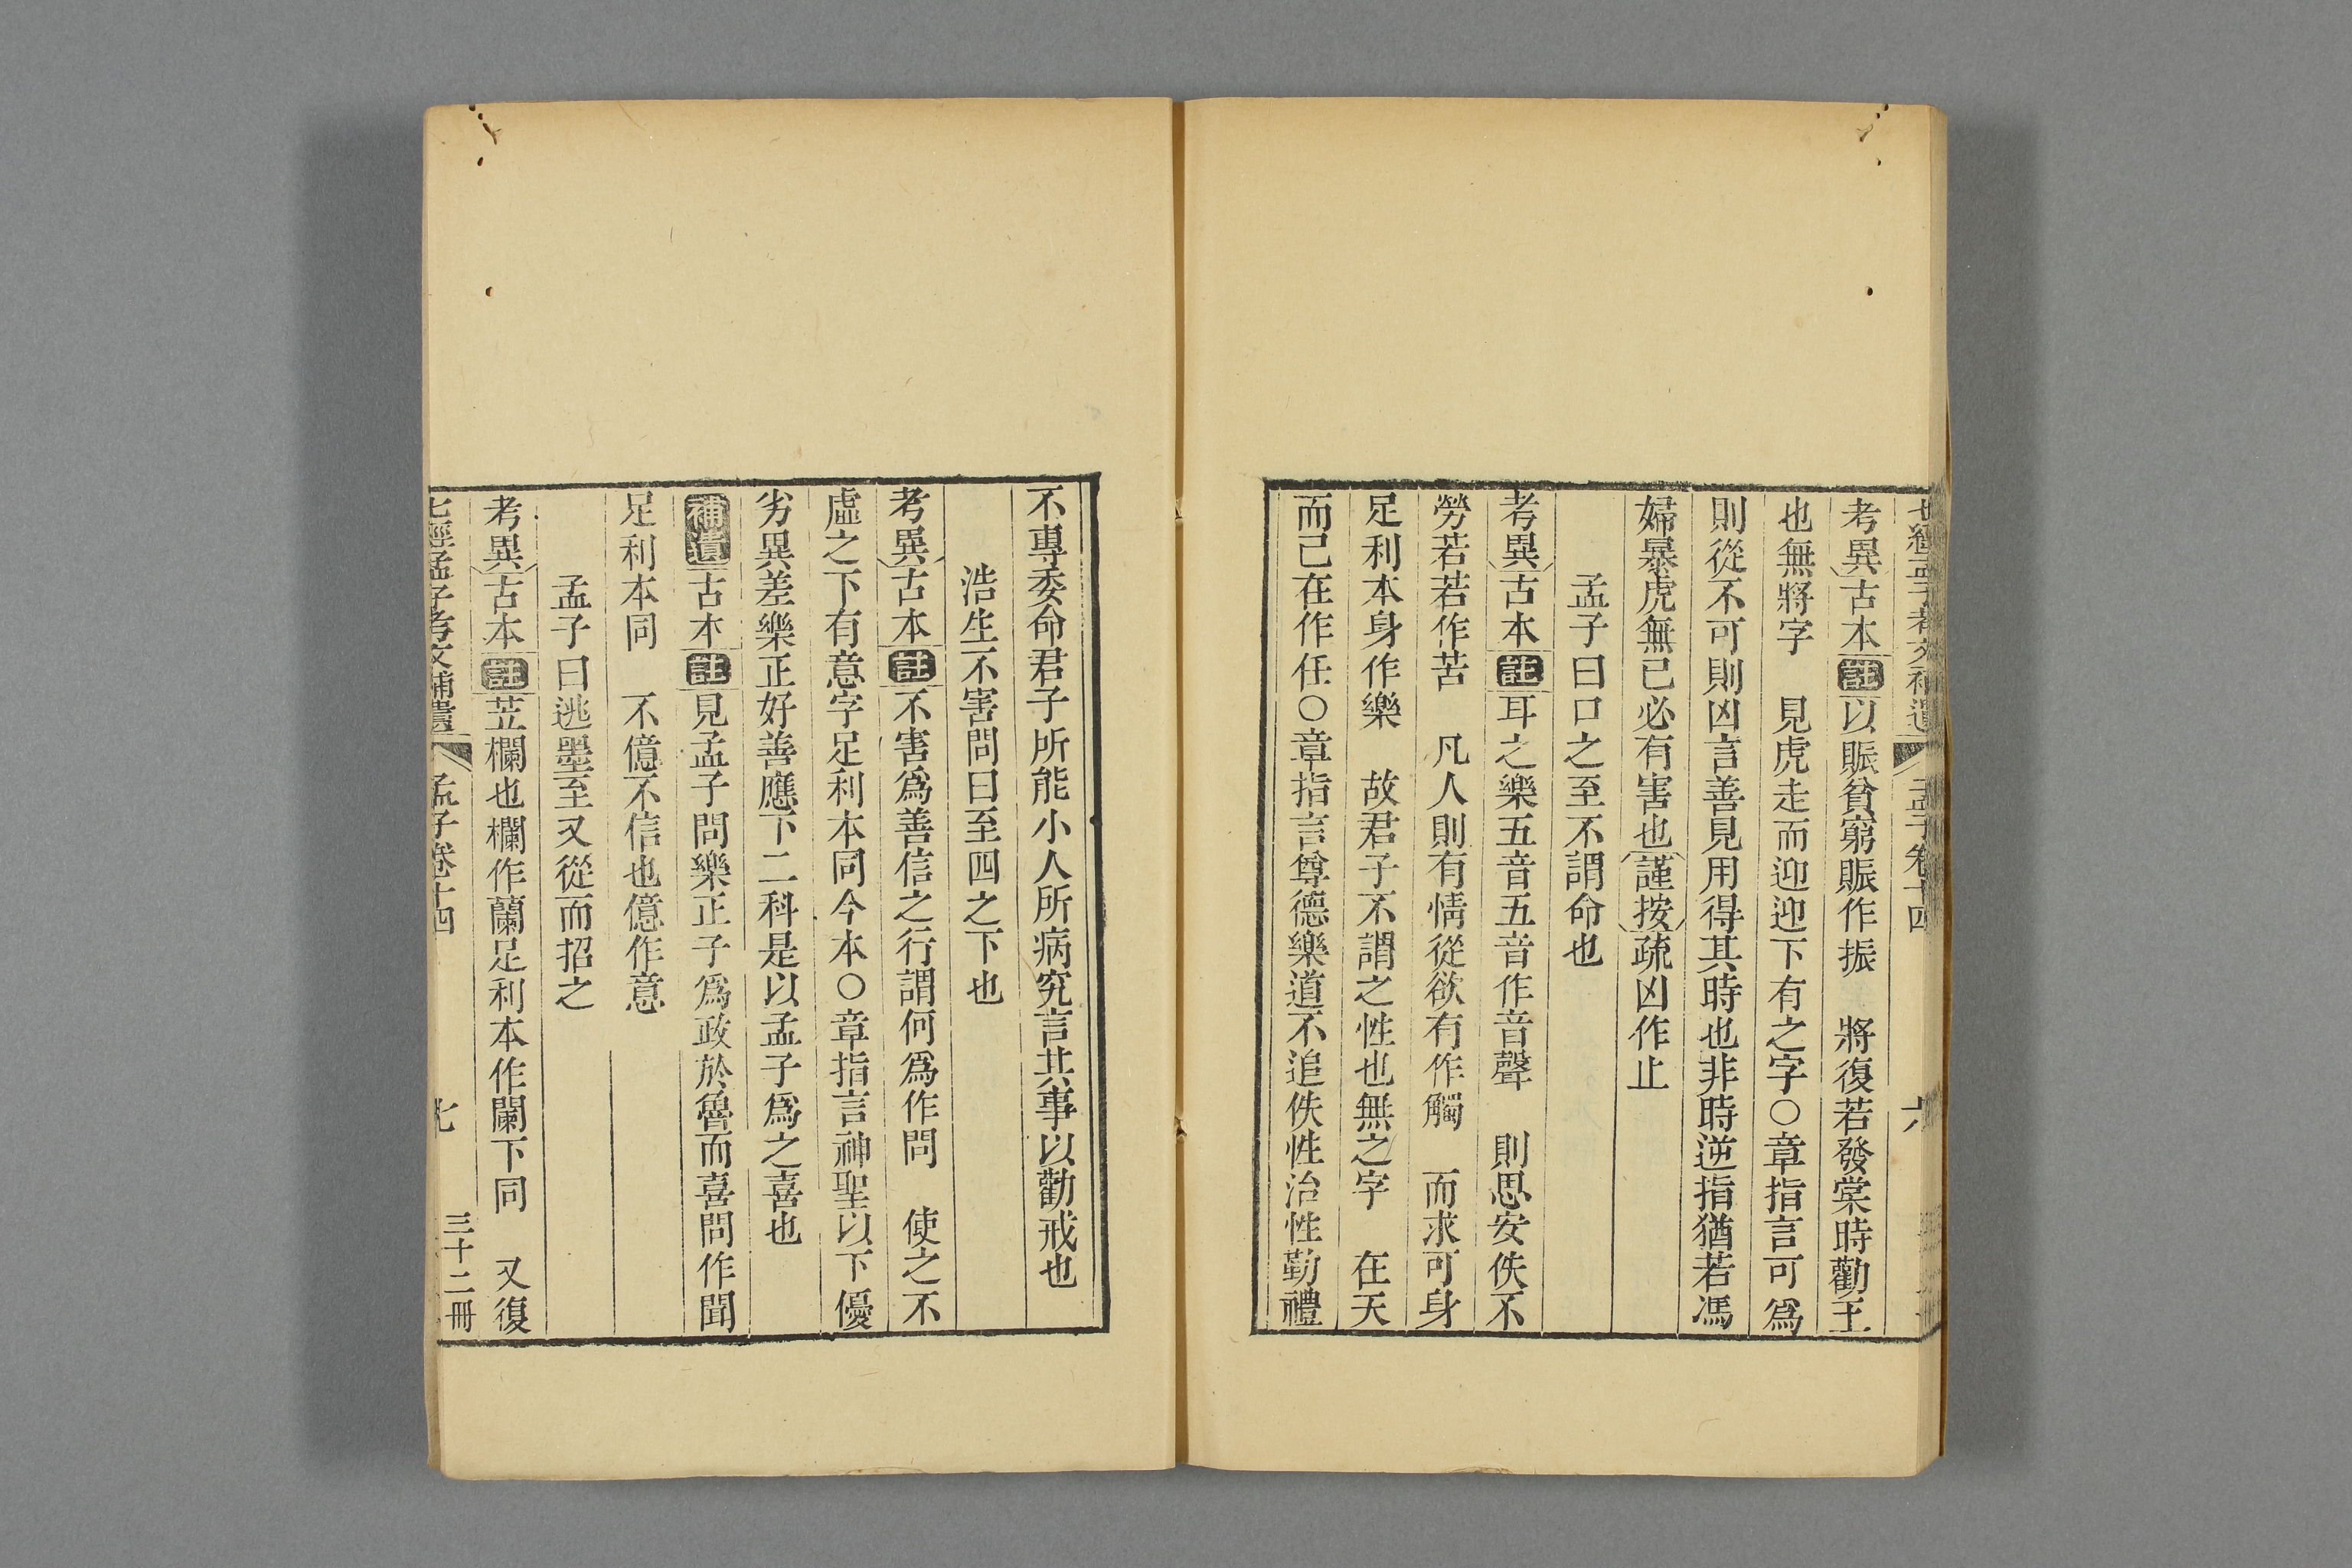 七經孟子考文補遺 孟子卷十四 六
考異古本註以賑貧窮賑作振　將復若發棠時勸王
也無將字　見虎走而迎迎下有之字○章指言可爲
則從不可則凶言善見用得其時也非時逆指猶若馮
婦暴虎無已必有害也謹按疏凶作止
孟子曰口之至不謂命也
考異古本註耳之樂五音五音作音聲　則思安佚不
勞若若作苦　凡人則有情從欲有作觸　而求可身
足利本身作樂　故君子不謂之性也無之字　在天
而已在作任○章指言尊德樂道不追佚性治性勤禮
不專委命君子所能小人所病究言其事以勸戒也
浩生不害問曰至四之下也
考異古本註不害爲善信之行謂何爲作問　使之不
虛之下有意字足利本同今本○章指言神聖以下優
劣異差樂正好善應下二科是以孟子爲之喜也
補遺古本註見孟子問樂正子爲政於魯而喜問作聞
足利本同　不億不信也億作意
孟子曰逃墨至又從而招之
考異古本註苙欄也欄作蘭足利本作闌下同　又復
七經孟子考文補遺 孟子卷十四 七 三十二冊